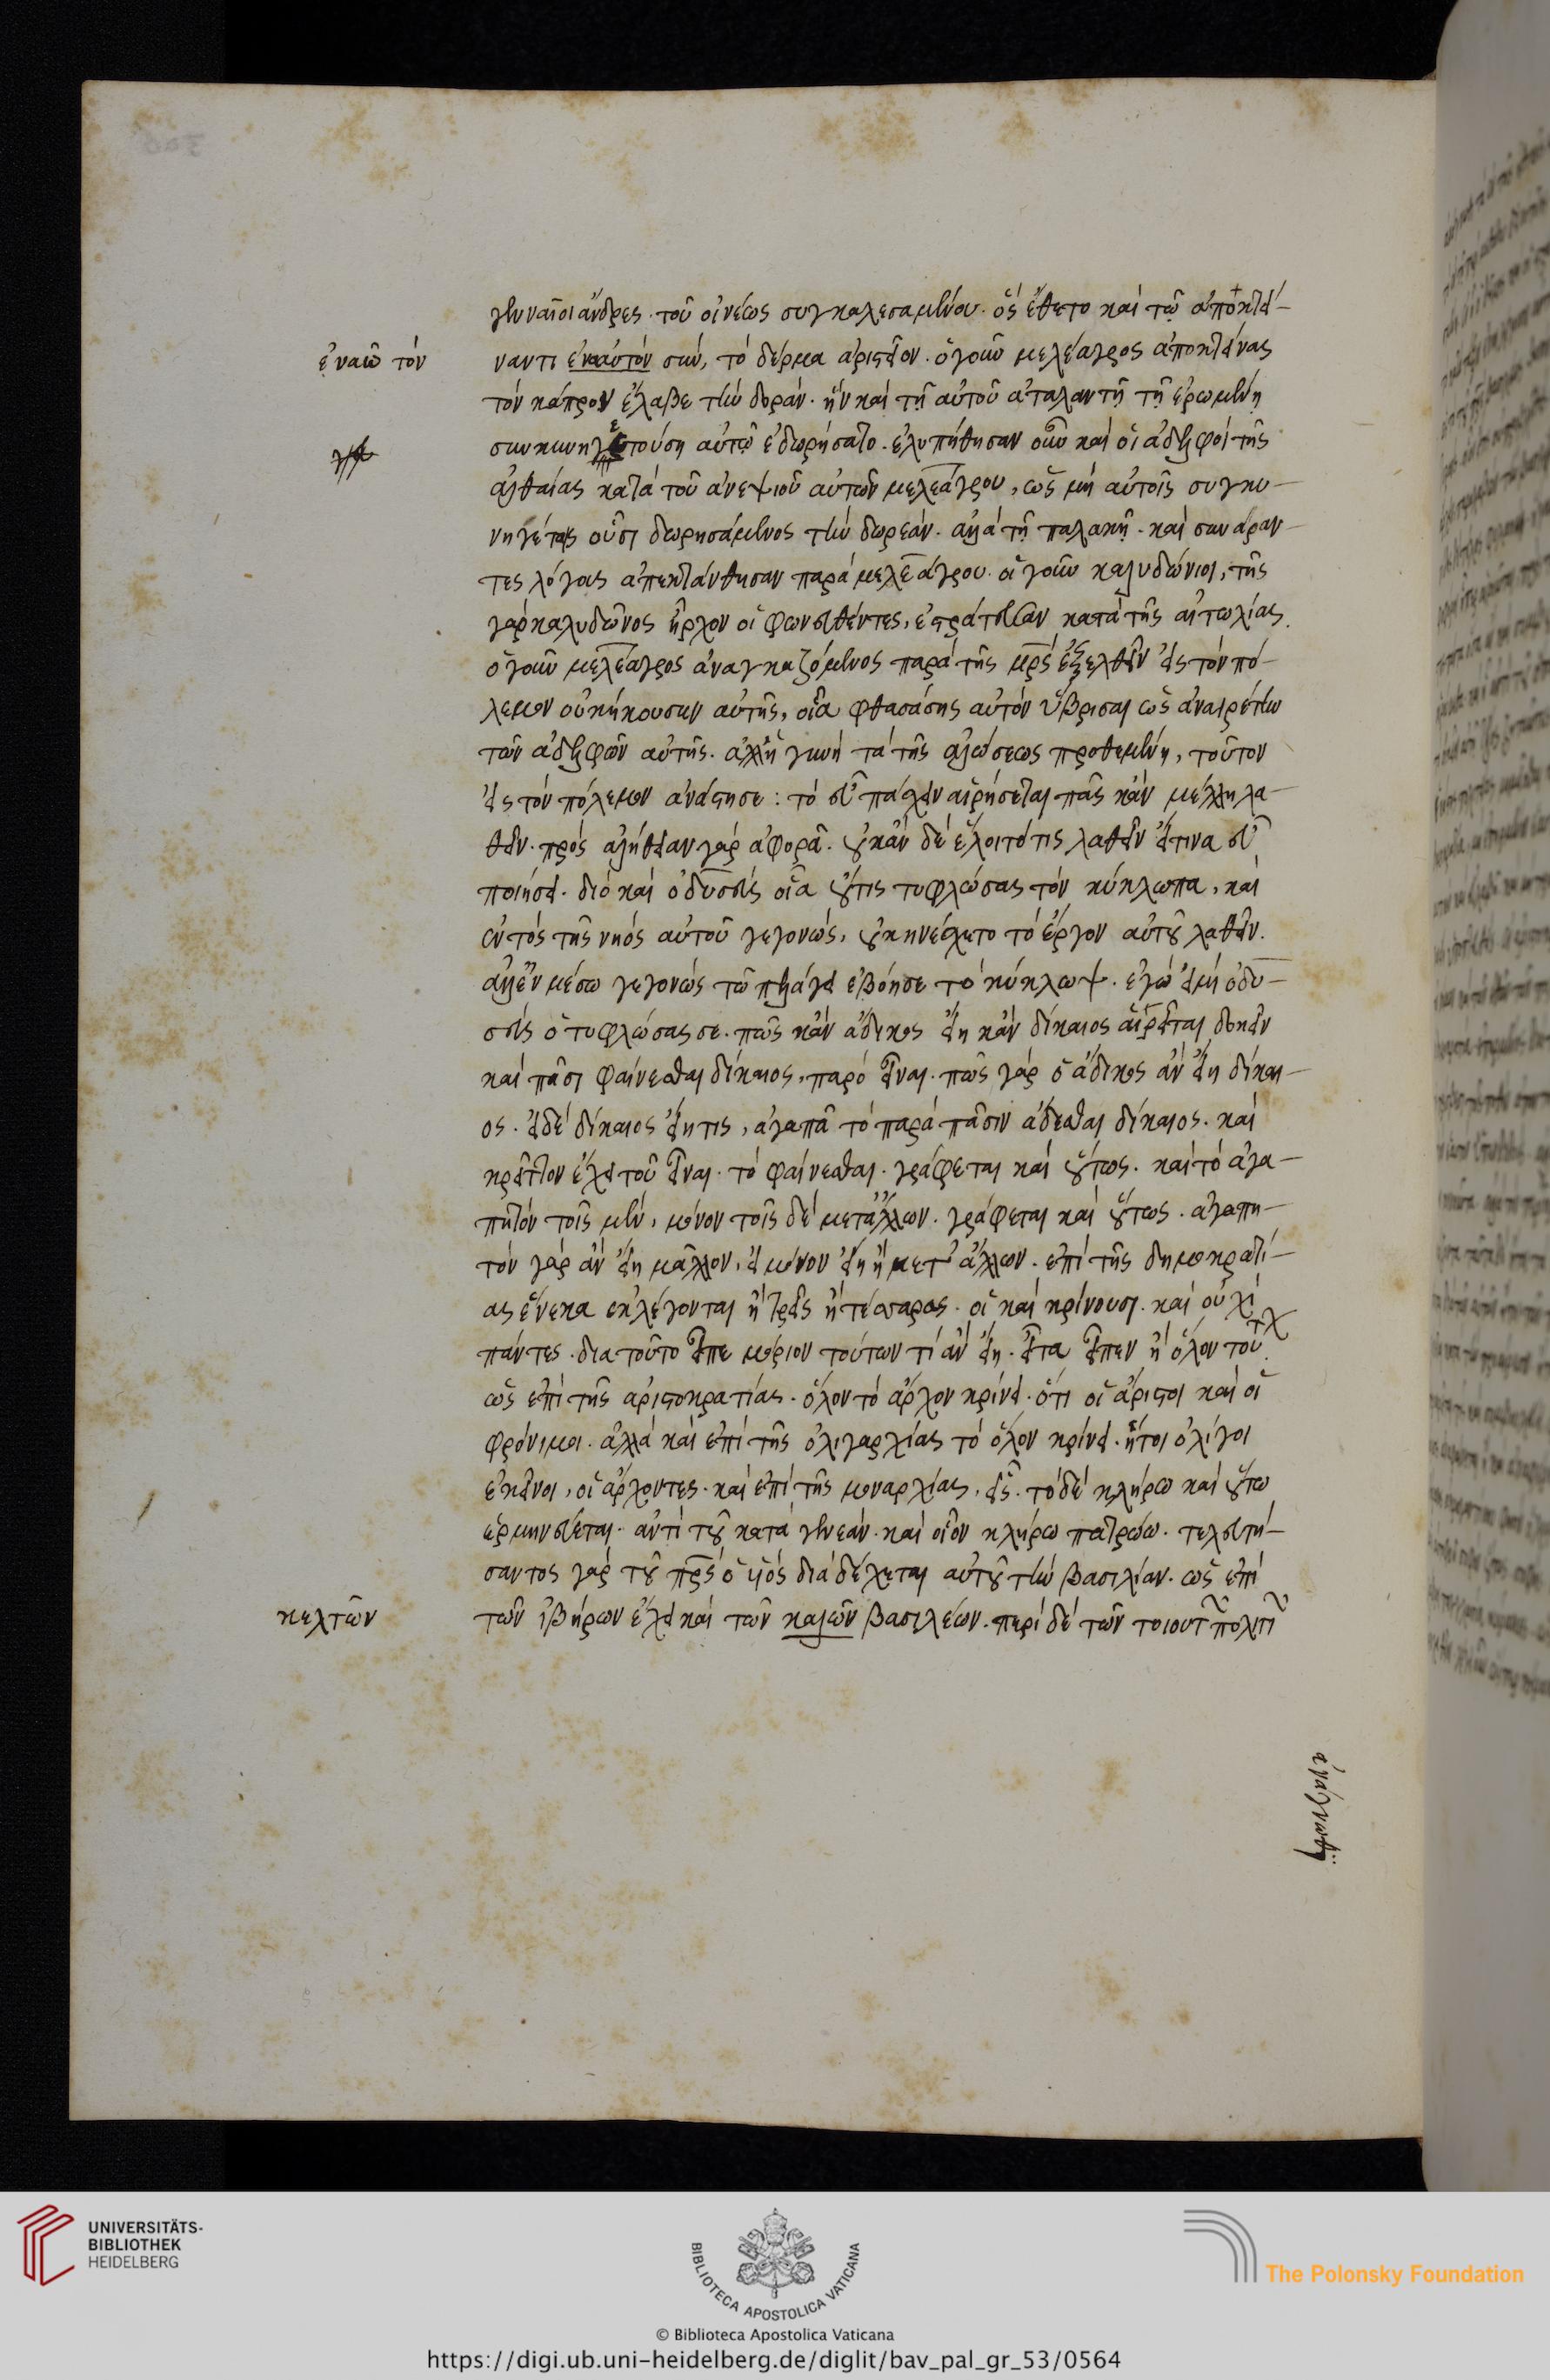 γενναῖοι ἄνδρες. τοῦ οἰνέως συγκαλεσαμένου. ὃς ἔθετο καὶ τῷ ἀποκτεί-
ἐναῶ τόν
ναντι ἐναυτόν συν, τὸ δέρμα ἀριστεῖον. ὁ γοῦν μελέαγρος ἀποκτείνας
τὸν κάπρον ἔλαβε τὴν δοράν. ἣν καὶ τῇ αὐτοῦ ἀταλαντῇ τῇ ἐρωμένῃ
συνκυνηγετούσῃ αὐτῷ ἐδωρήσατο. ἐλυπήθησαν οὖν καὶ οἱ ἀδελφοὶ τῆς
ἀλθαίας κατὰ τοῦ ἀνεψιοῦ αὐτῶν μελεάγρου, ὡς μὴ αὐτοῖς συγκυ-
νηγέταις οὖσι δωρησάμενος τὴν δωρεάν. ἀλλὰ τῇ παλακῇ. καὶ συνάραν-
τες λόγοις ἀπεκτάνθησαν παρὰ μελεάγρου. οἱ γοῦν καλυδώνιοι, τῆς
γὰρ καλυδῶνος ἦρχον οἱ φονευθέντες, ἐστράτευσαν κατὰ τῆς αἰτωλίας.
ὁ γοῦν μελέαγρος ἀναγκαζόμενος παρὰ τῆς μρς ἐξελθεῖν εἰς τὸν πό-
λεμον οὐκ ἤκουσεν αὐτῆς, οἷα φθασάσης αὐτὸν ὑβρίσαι ὡς ἀναιρέτην
τῶν ἀδελφῶν αὐτῆς. ἀλλ' ἡ γυνὴ τὰ τῆς ἁλώσεως προθεμένη, τοῦτον
εἰς τὸν πόλεμον ἀνάστησε: τὸ εὖ πάσχειν αἱρήσεται πᾶς κἂν μέλλῃ λα-
θεῖν. πρὸς ἀλήθειαν γὰρ ἀφορᾷ. οὐκ ἂν δὲ ἕλοιτό τις λαθεῖν εἴ τινα εὖ
ποιήσει. διὸ καὶ ὀδυσσεὺς οἷα οὔτις τυφλώσας τὸν κύκλωπα, καὶ
ἐντὸς τῆς νηὸς αὐτοῦ γεγονώς, οὐκ ἠνέσχετο τὸ ἔργον αὐτοῦ λαθεῖν.
ἀλλ' ἐν μέσω γεγονὼς τῶ πελάγει ἐβόησε τὸ κύκλωψ. ἐγώ εἰμι ὀδυ-
σεὺς ὁ τυφλώσας σε. πῶς κἂν ἄδικος εἴη κἂν δίκαιος αἱρεῖται δοκεῖν
καὶ πᾶσι φαίνεσθαι δίκαιος, παρὸ εἶναι. πῶς γὰρ ὁ ἄδικος ἂν εἴη δίκαι-
ος. εἰ δὲ δίκαιος εἴη τις, ἀγαπᾷ τὸ παρὰ πᾶσιν ᾄδεσθαι δίκαιος. καὶ
κρεῖττον ἔχει τοῦ εἶναι. τὸ φαίνεσθαι. γράφεται καὶ οὕτως. καὶ τὸ ἀγα-
πητὸν τοῖς μὲν, μόνον τοῖς δὲ μετ' ἄλλων. γράφεται καὶ οὕτως. ἀγαπη-
τὸν γὰρ ἂν εἴη μᾶλλον, εἰ μόνον εἴη ἢ μετ' ἄλλων. ἐπὶ τῆς δημοκρατί-
ας ἕνεκα ἐκλέγονται ἢ τρεῖς ἢ τέσσαρας. οἳ καὶ κρίνουσι. καὶ οὐχὶ
πάντες. διατοῦτο εἶπε μόριον τούτων τί ἂν εἴη. εἶτα εἶπεν ἢ ὅλον του
ὡς ἐπὶ τῆς ἀριστοκρατίας. ὅλον τὸ ἄρχον κρίνει. ὅτι οἱ ἄριστοι καὶ οἱ
φρόνιμοι. ἀλλὰ καὶ ἐπὶ τῆς ὀλιγαρχίας τὸ ὅλον κρίνει. ἤτοι ὀλίγοι
ἐκεῖνοι, οἱ ἄρχοντες. καὶ ἐπὶ τῆς μοναρχίας, εἷς. τὸ δὲ κλήρω καὶ οὕτω
ἑρμηνεύεται. ἀντὶ τοῦ κατὰ γενεάν. καὶ οἷον κλήρω πατρώω. τελευτή-
σαντος γὰρ τοῦ πρς ὁ υἱὸς διαδέχεται αὐτοῦ τὴν βασιλείαν. ὡς ἐπὶ
κελτῶν
τῶν ἰβήρων ἔχει καὶ τῶν καλῶν βασιλέων. περὶ δὲ τῶν τοιουτ πολιτ
ἀνάγνωθι
UNIVERSITÄTS-
BIBLIOTHEK
HEIDELBERG
BIBLIOTECA APOSTOLICA VATICANA
The Polonsky Foundation
© Biblioteca Apostolica Vaticana
https://digi.ub.uni-heidelberg.de/diglit/bav_pal_gr_53/0564